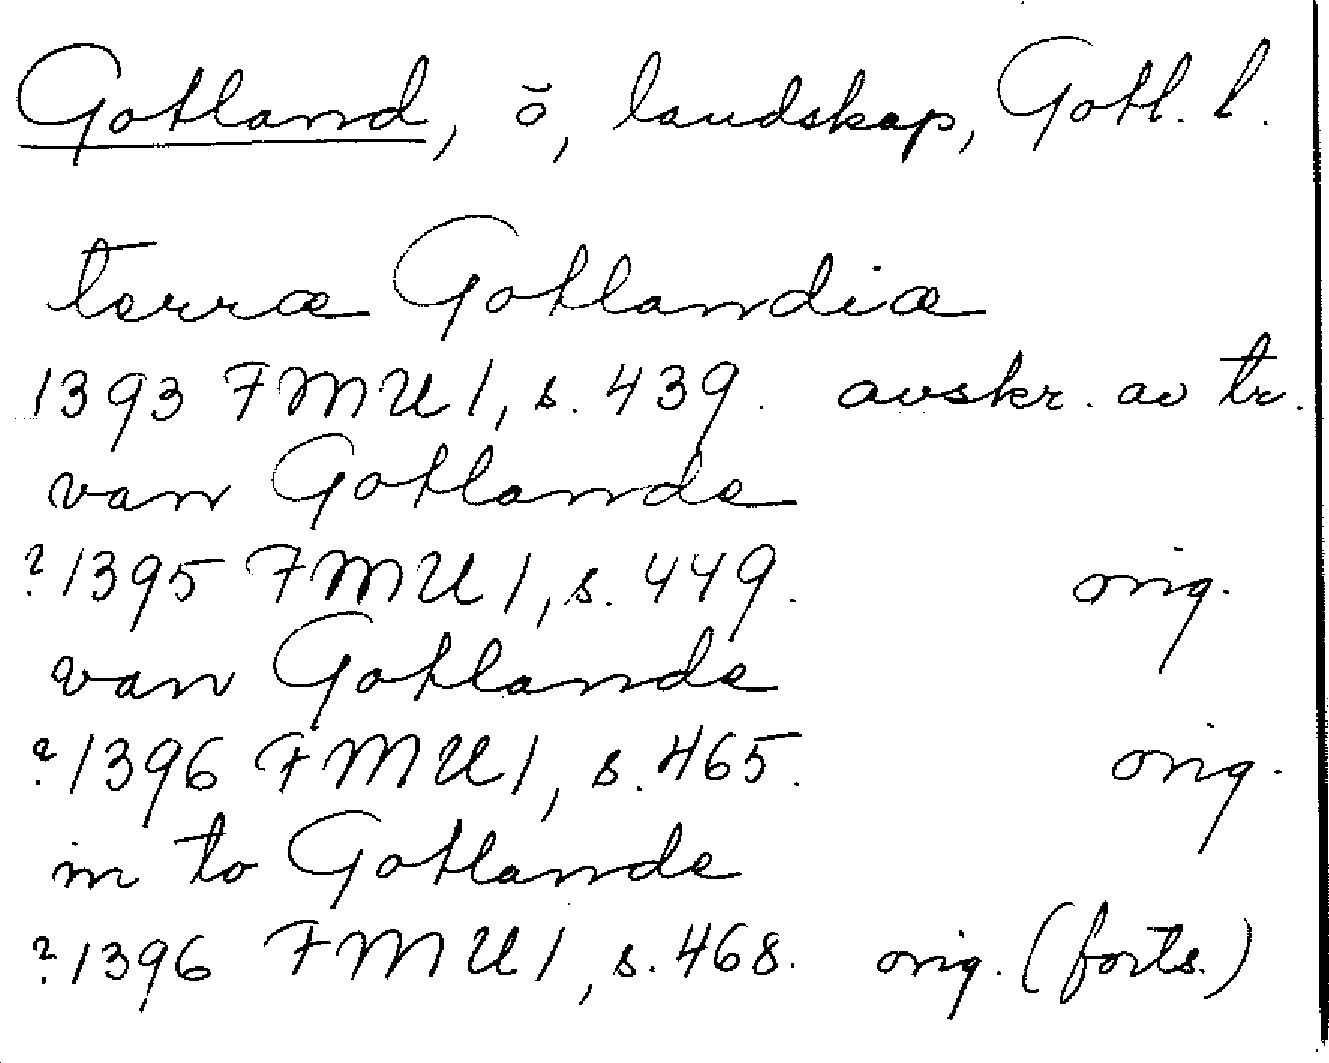 Gotland, ö, landskap, Gotl. l.
terræ Gotlandiæ
1393 FMU 1, s. 439. avskr. av tr.
van Gotlande
? 1395 FMU 1, s. 449. orig.
van Gotlande
? 1396 FMU 1, s. 465. orig.
in to Gotlande
? 1396 FMU 1, s. 468. orig. (forts.)